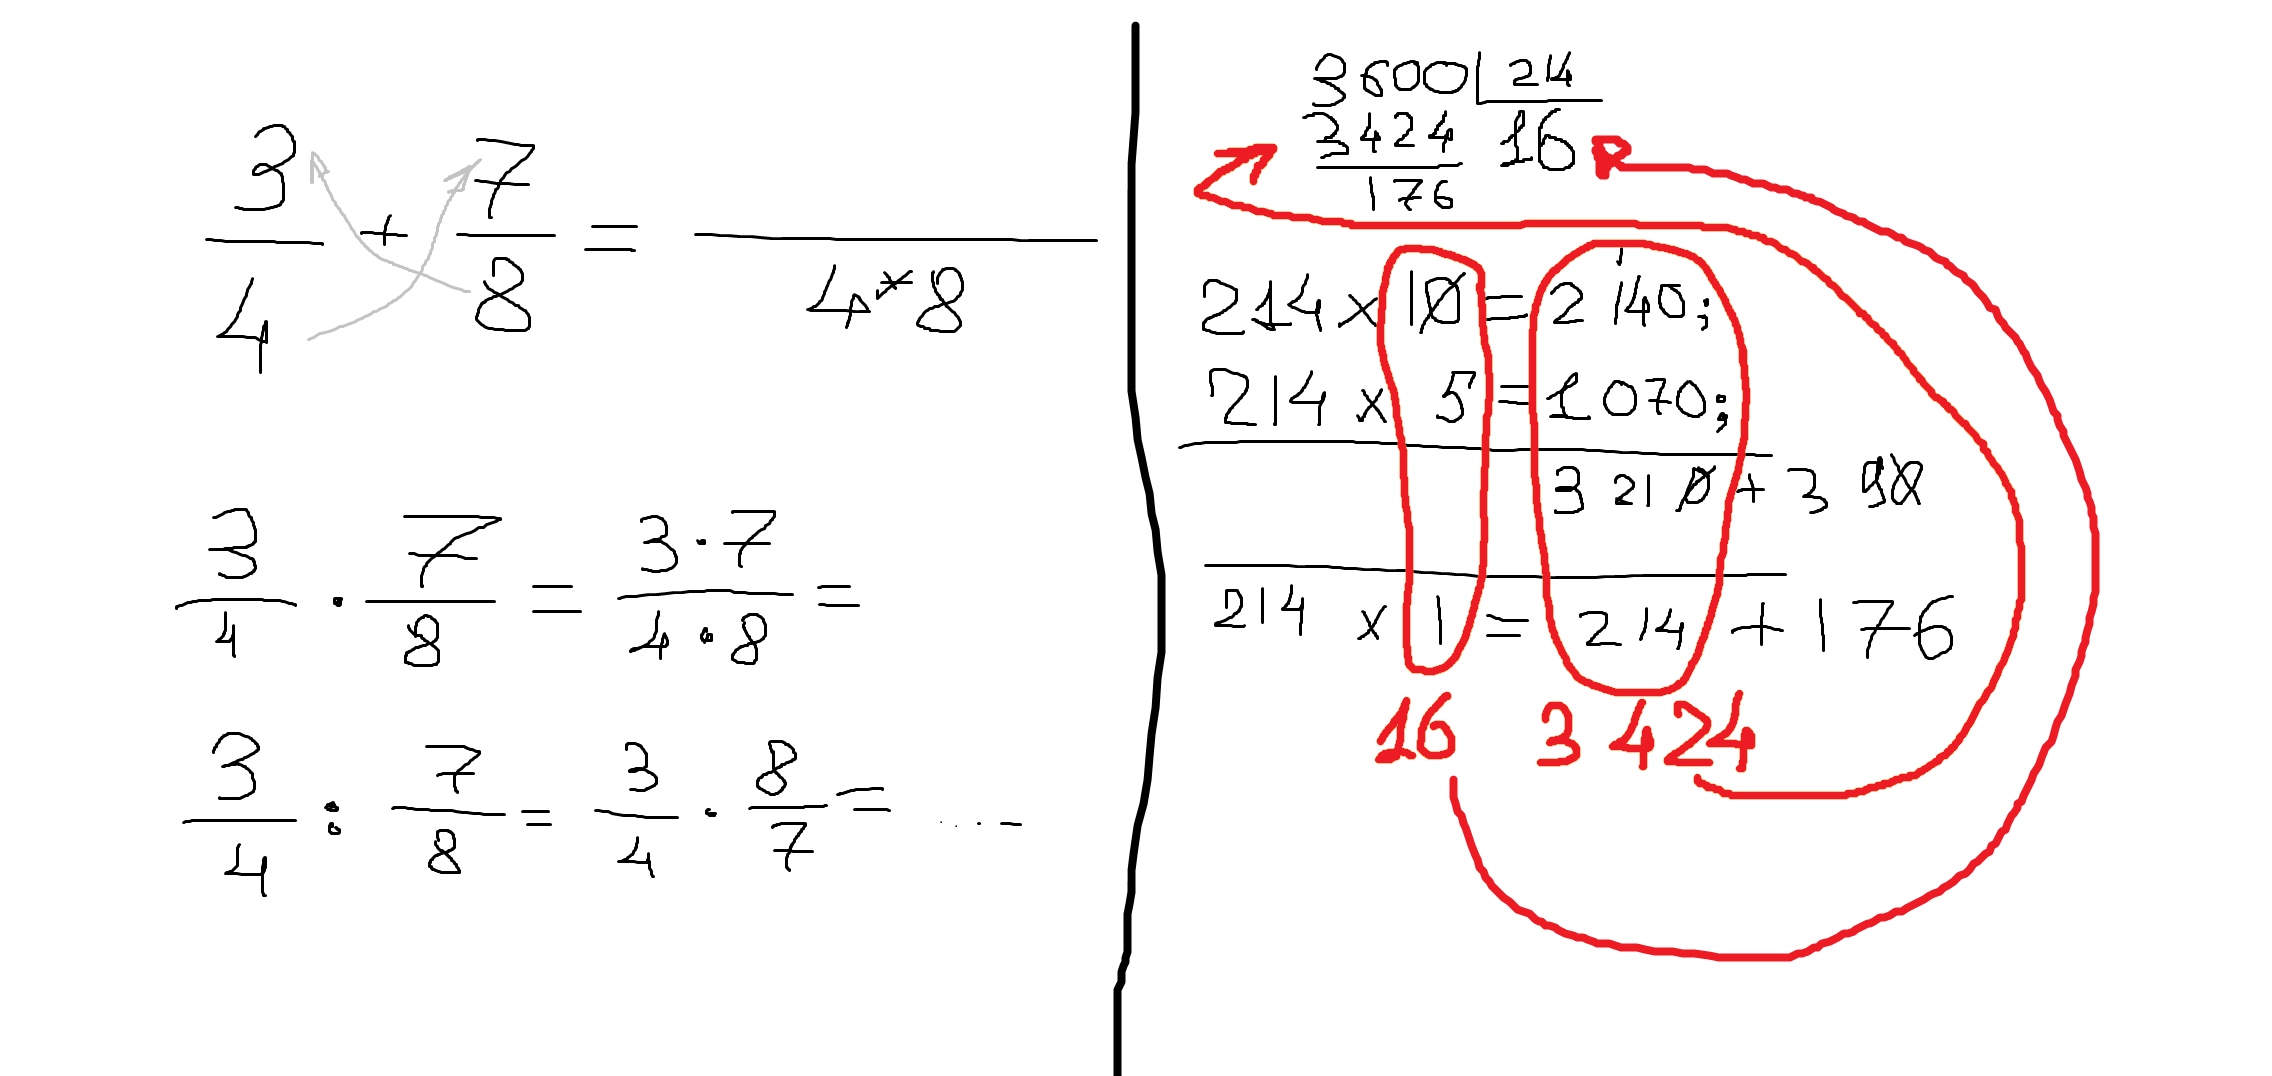 3/4 + 7/8 = /4*8
3/4 · 7/8 = 3·7/4·8 =
3/4 : 7/8 = 3/4 · 8/7 = ....
3600 | 214
3424 16
176
214 x 10 = 2 140;
214 x 5 = 1 070;
3 210 + 3 90
214 x 1 = 214 + 176
16 3 424